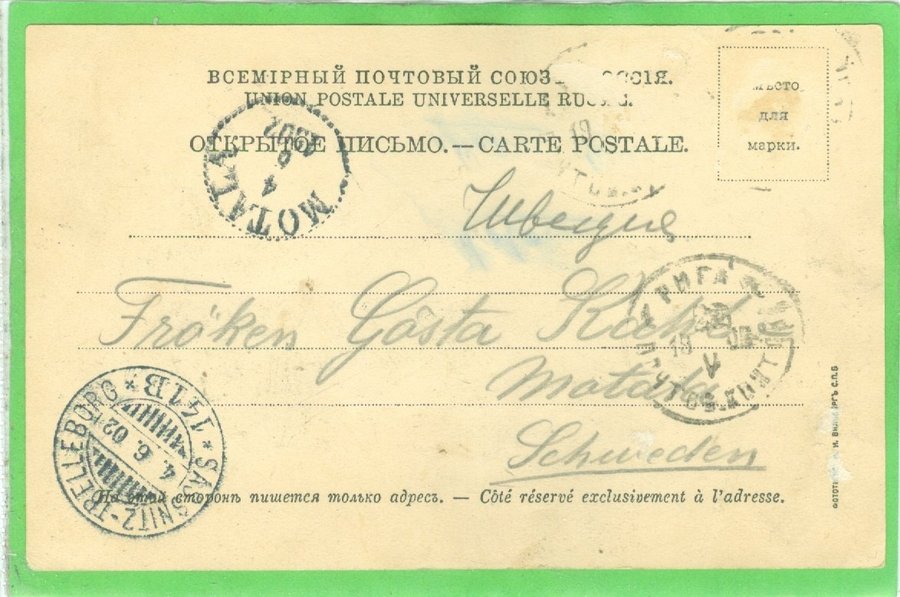 ВСЕМІРНЫЙ ПОЧТОВЫЙ СОЮЗ РОССІЯ.
UNION POSTALE UNIVERSELLE RUSSIE.
ОТКРЫТОЕ ПИСЬМО. — CARTE POSTALE.
МѢСТО
ДЛЯ
МАРКИ.
MOTALA
4
6
1902
Швеция
Fröken Gösta
Motala
Schweden
РИГА
SASSNITZ-TRELLEBORG * 141B *
4. 6. 02
На этой сторонѣ пишется только адресъ. — Côté réservé exclusivement à l'adresse.